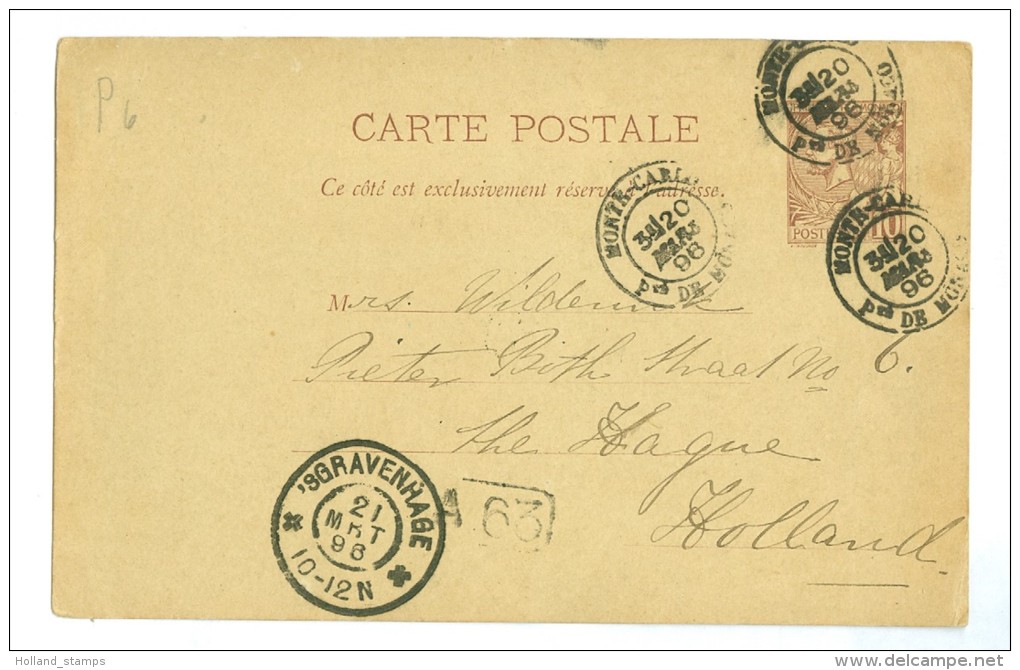 P 6
CARTE POSTALE
Ce côté est exclusivement réservé à l'adresse.
MONTE-CARLO
20
MARS
96
Pté DE MONACO
MONTE-CARLO
20
MARS
96
Pté DE MONACO
POSTE 10
MONTE-CARLO
20
MARS
96
Pté DE MONACO
Mrs.
Pieter Both Straat No 6.
the Hague
Holland
'SGRAVENHAGE
21
MRT
96
10-12N
A 63
Holland_stamps
delcampe.net